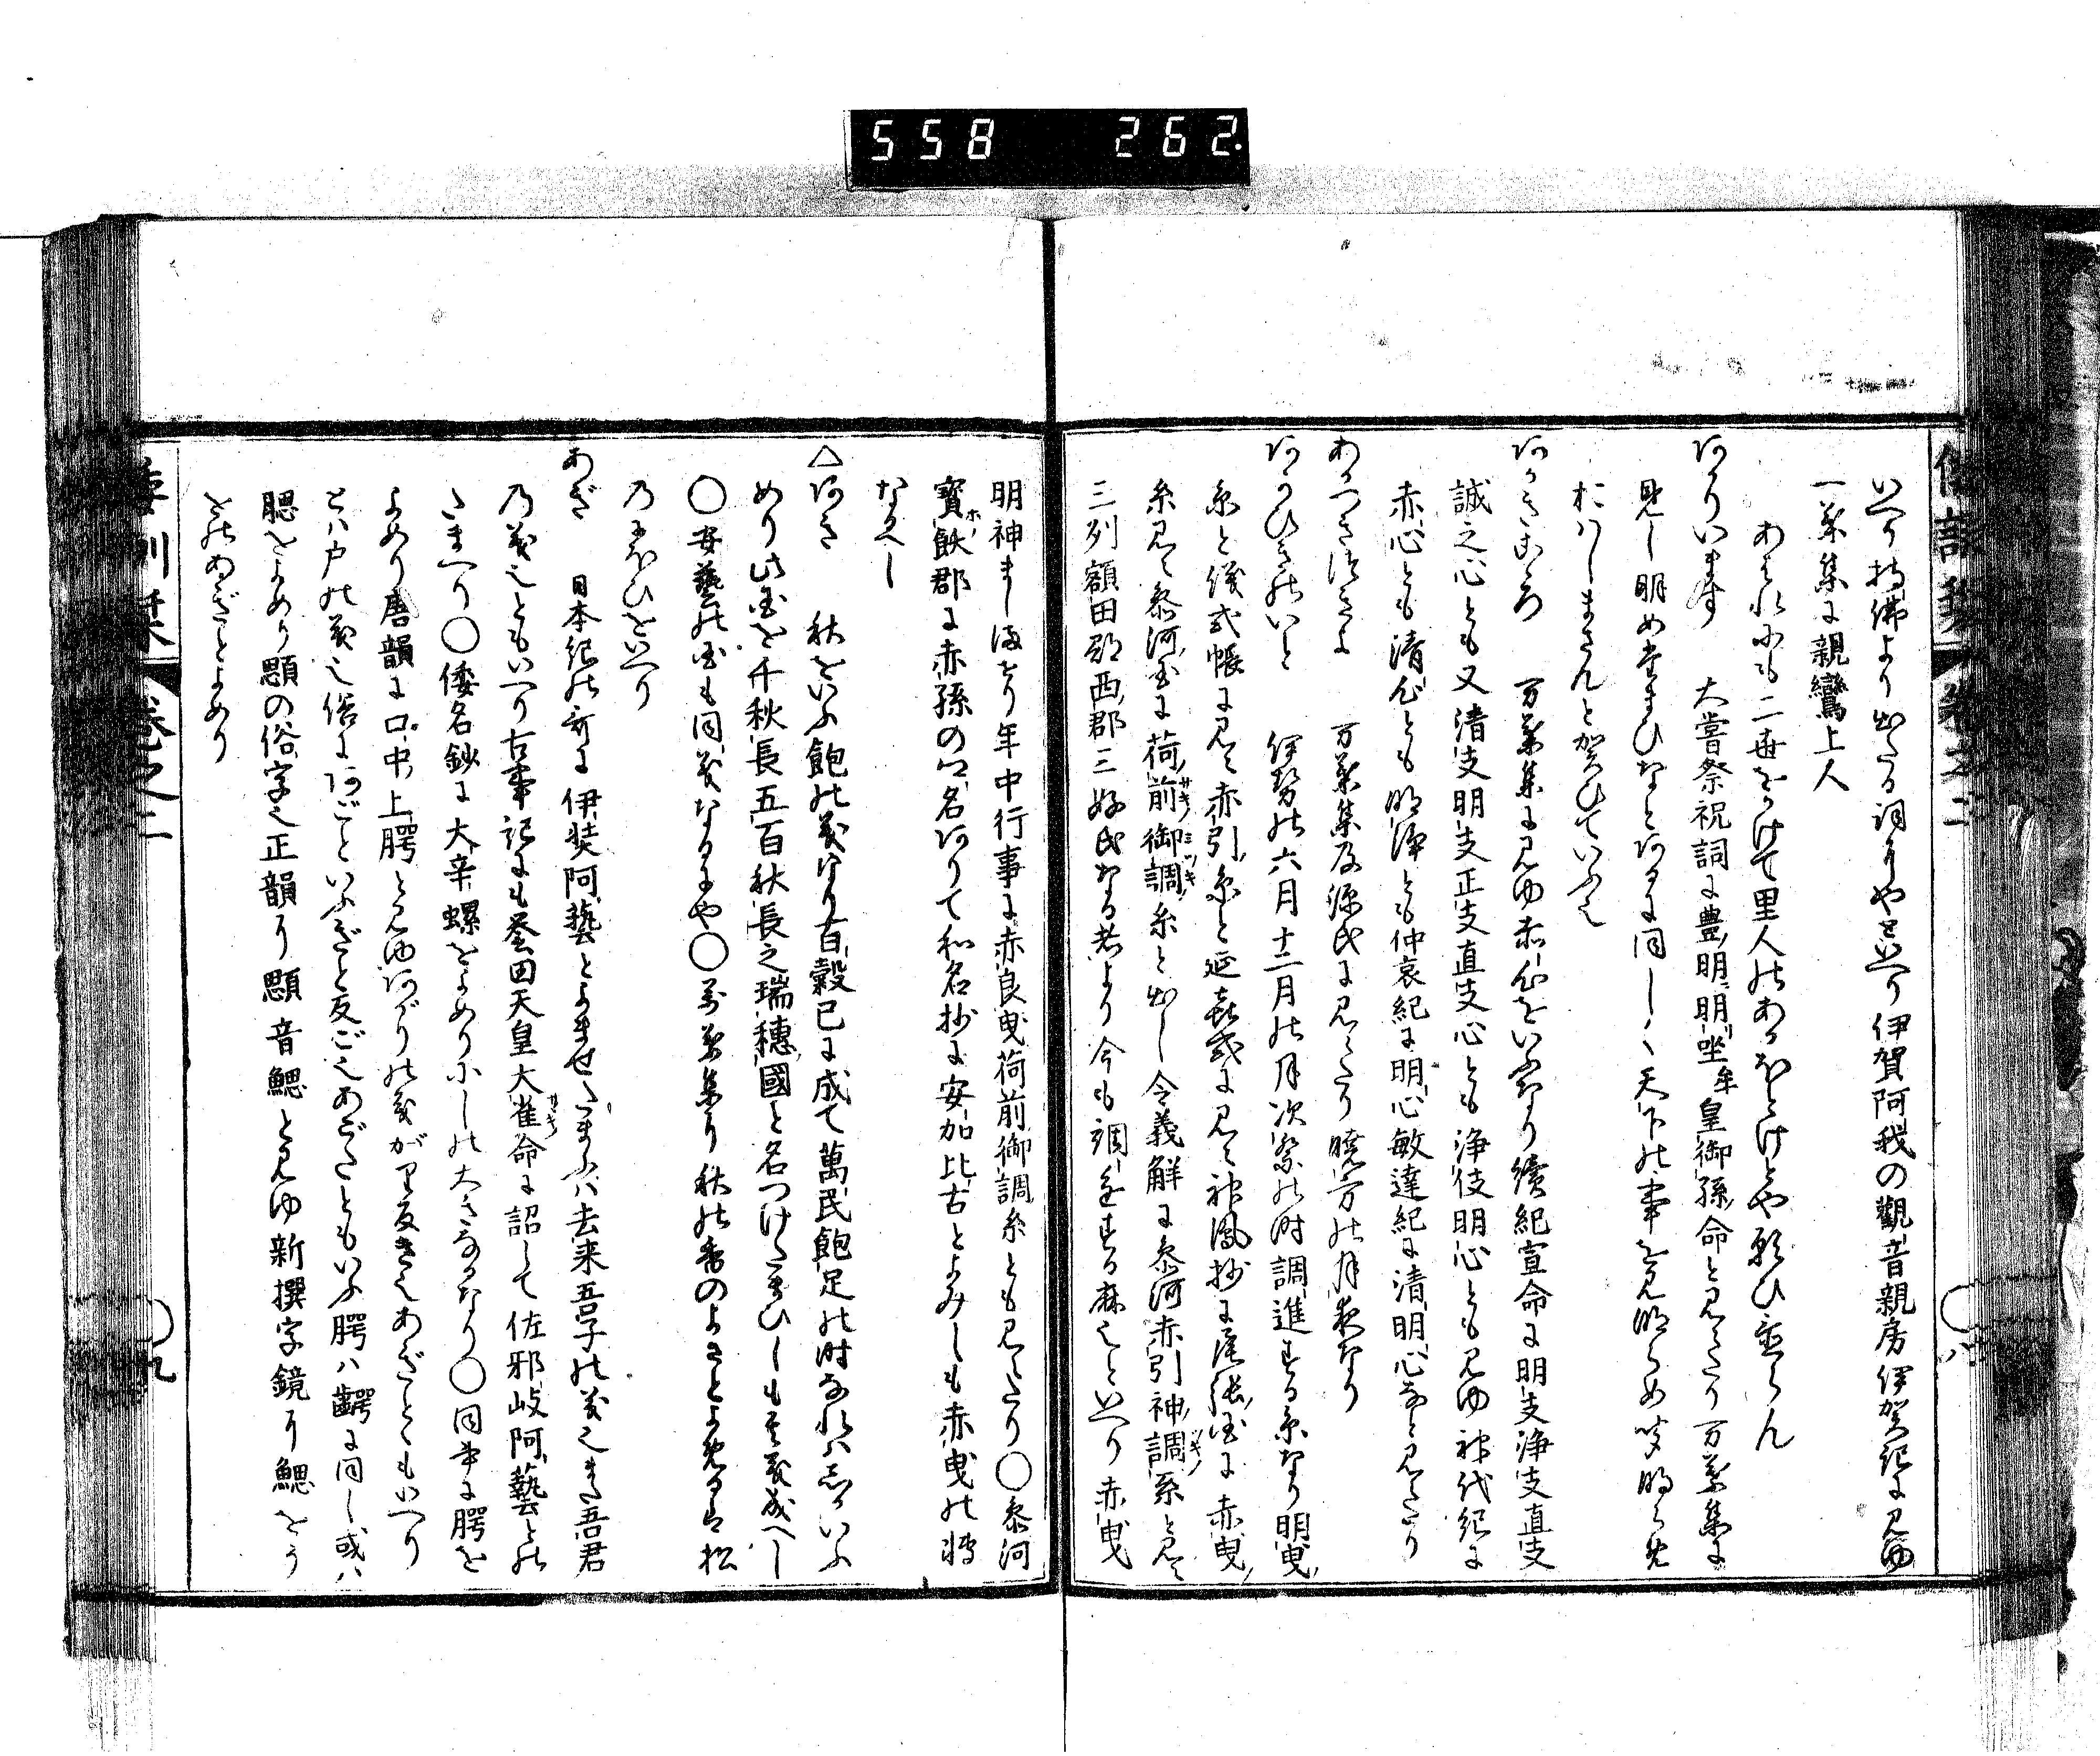 558 262
いへり持佛より出たる詞にやといへり伊賀阿我の觀音親房伊賀記に見ゆ
一葉集に親鸞上人
あはれにも二世をかけて里人のあかほとけとや願ひ
あかります 大嘗祭祝詞に豊明明坐牟皇御孫命と見えたり万葉集に
見し明めたまひなとあるに同しく天下の事を見明らめ
おはしまさんと賀ひていふ也
あかきこゝろ 万葉集に見ゆ赤心をいふなり續紀宣命に明支浄支直支
誠之心とも又清支明支正支直支心とも浄伎明心とも見ゆ神代紀に
赤心とも清心とも明浄とも仲哀紀に明心敏達紀に清明心なと見えたり
あかつきつきよ 万葉集及源氏に見えたり暁方の月夜なり
あかひきのいと 伊勢の六月十二月の月次祭の時調進する糸なり明曳
糸と儀式帳に見え赤引糸と延喜式に見え神鳳抄に尾張國に赤曳
糸見え參河國に荷前御調糸と出し令義解に參河赤引神調糸と見え
三列額田郡西郡三好氏なる者より今も調進する麻也といへり赤曳
明神ましませり年中行事に赤良曳荷前御調糸とも見えたり〇參河
寶飫郡に赤孫の名ありて和名抄に安加比古とよみしも赤曳の轉
なるへし
△あき 秋をいふ飽の義なり百穀已に成て萬民飽足の時なれはしかいふ
めり此國を千秋長五百秋長之瑞穗國と名つけたまひしも其義成へし
〇安藝の國も同義なるにや〇万葉集に秋の香のよさとよめるは松
乃にほひをいへり
あぎ 日本紀の哥に伊奘阿藝とよませたまふハ去来吾子の義也また吾君
乃義也ともいへり古事記にも誉田天皇大雀命に詔して佐邪岐阿藝との
たまへり〇倭名鈔に大辛螺をよめりにしの大きなるなり〇同書に腭を
よめり唐韻に口中上腭と見ゆあがりの義がり反き也あぎとゝもいへり
とハ戸の義也俗にあごといふぎと反ご也あぎたともいふ腭ハ齶に同し或ハ
腮をよめり顋の俗字也正韻に顋音鰓と見ゆ新撰字鏡に鰓をう
をのあぎとよめり